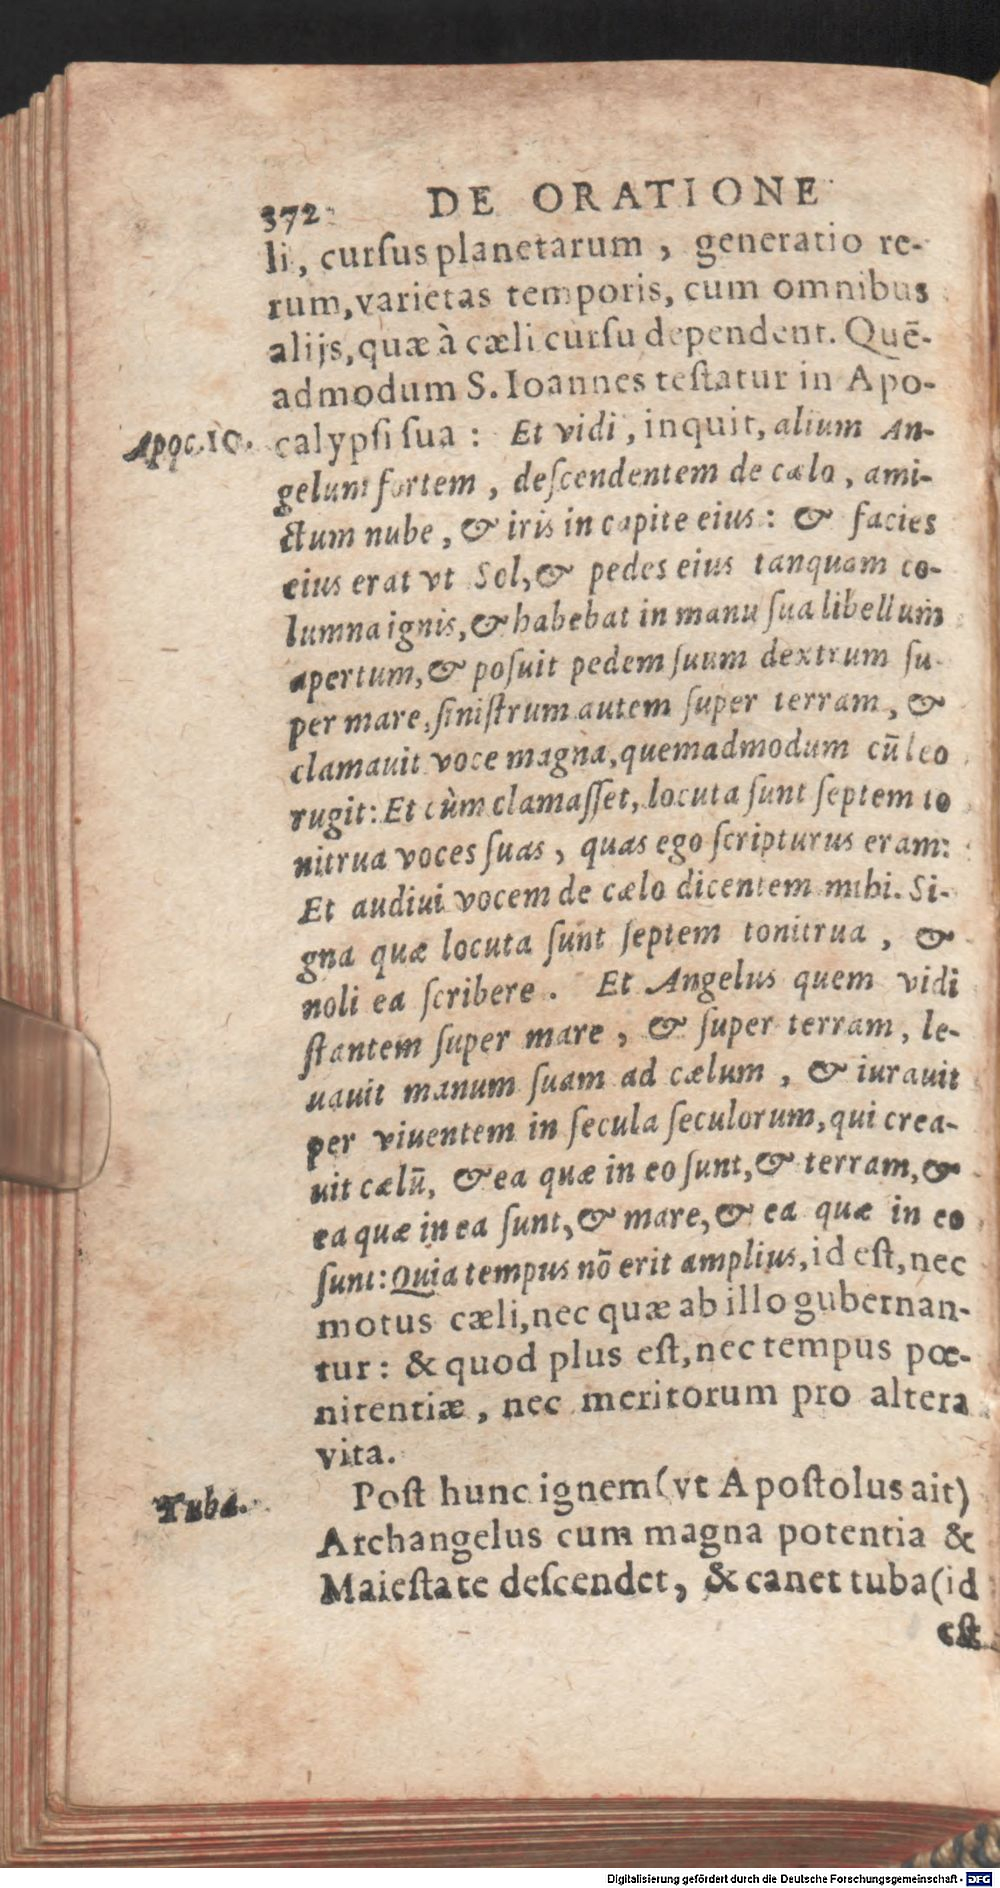 372 DE ORATIONE
li, curſus planetarum, generatio re-
rum, varietas temporis, cum omnibus
alijs, quæ à cæli curſu dependent. Quē-
admodum S. Ioannes teſtatur in Apo-
Apoc. 10.
calypſi ſua: Et vidi, inquit, alium An-
gelum fortem, deſcendentem de cælo, ami-
ctum nube, & iris in capite eius: & facies
eius erat vt Sol, & pedes eius tanquam co-
lumna ignis, & habebat in manu ſua libellum
apertum, & poſuit pedem ſuum dextrum ſu-
per mare, ſiniſtrum autem ſuper terram, &
clamauit voce magna, quemadmodum cū leo
rugit: Et cùm clamaſſet, locuta ſunt ſeptem to
nitrua voces ſuas, quas ego ſcripturus eram:
Et audiui vocem de cælo dicentem mihi. Si-
gna quæ locuta ſunt ſeptem tonitrua, &
noli ea ſcribere. Et Angelus quem vidi
ſtantem ſuper mare, & ſuper terram, le-
uauit manum ſuam ad cælum, & iurauit
per viuentem in ſecula ſeculorum, qui crea-
uit cælū, & ea quæ in eo ſunt, & terram, &
ea quæ in ea ſunt, & mare, & ea quæ in eo
ſunt: Quia tempus nō erit amplius, id eſt, nec
motus cæli, nec quæ ab illo gubernan-
tur: & quod plus eſt, nec tempus pœ-
nitentiæ, nec meritorum pro altera
vita.
Tuba.
Poſt hunc ignem (vt Apoſtolus ait)
Archangelus cum magna potentia &
Maieſtate deſcendet, & canet tuba (id
eſt
Digitalisierung gefördert durch die Deutsche Forschungsgemeinschaft - DFG